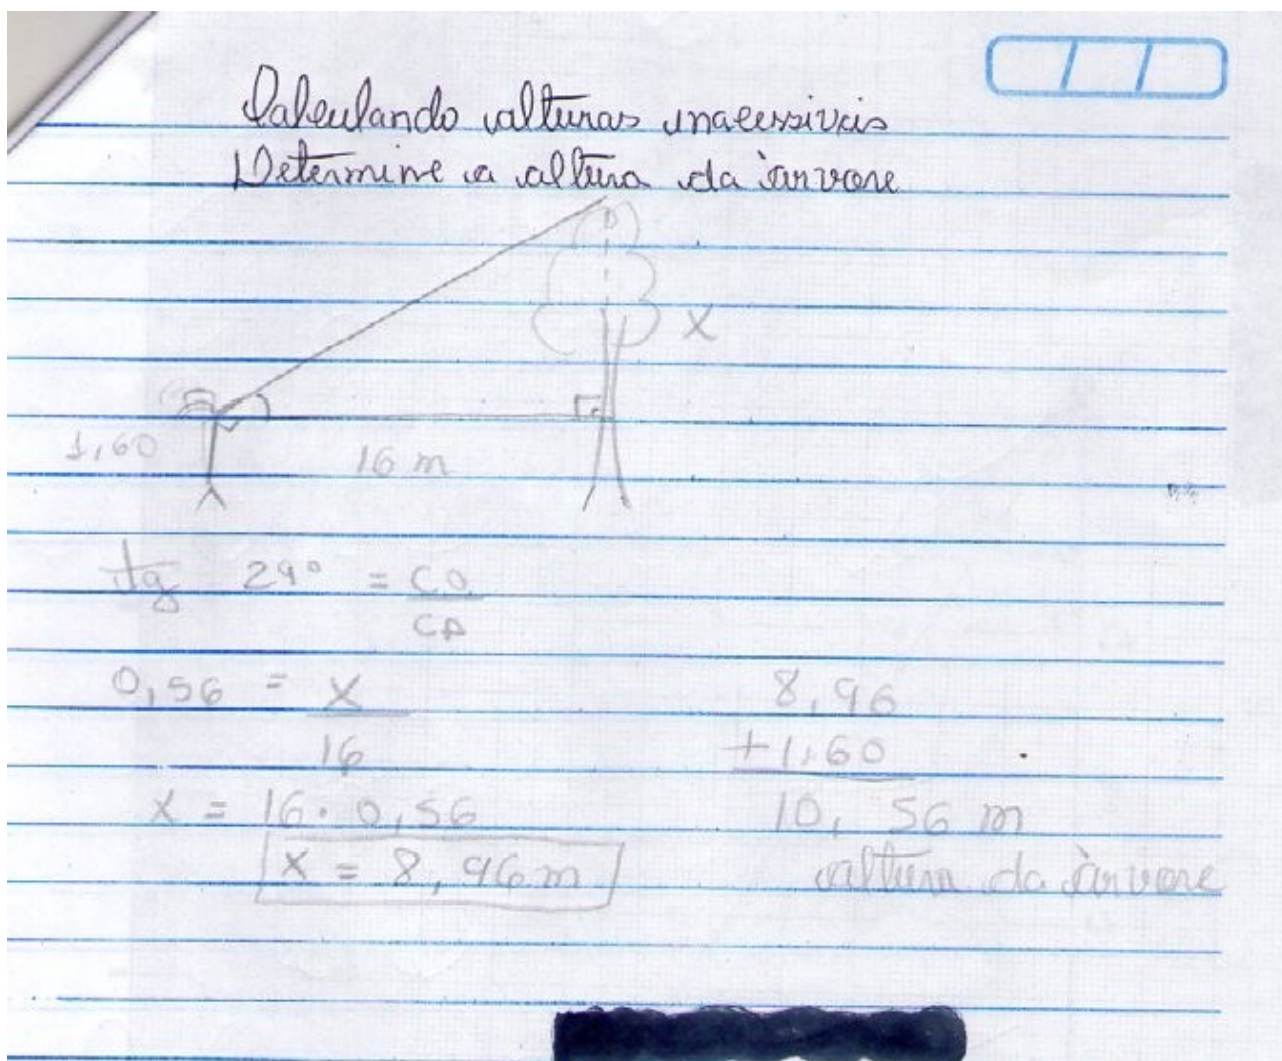 Calculando alturas inacessiveis
Determine a altura da àrvore
X
1,60
16 m
tg 29° = CO
CA
0,56 = X
16
X = 16 . 0,56
X = 8,96 m
8,96
+ 1,60
10, 56 m
altura da àrvore